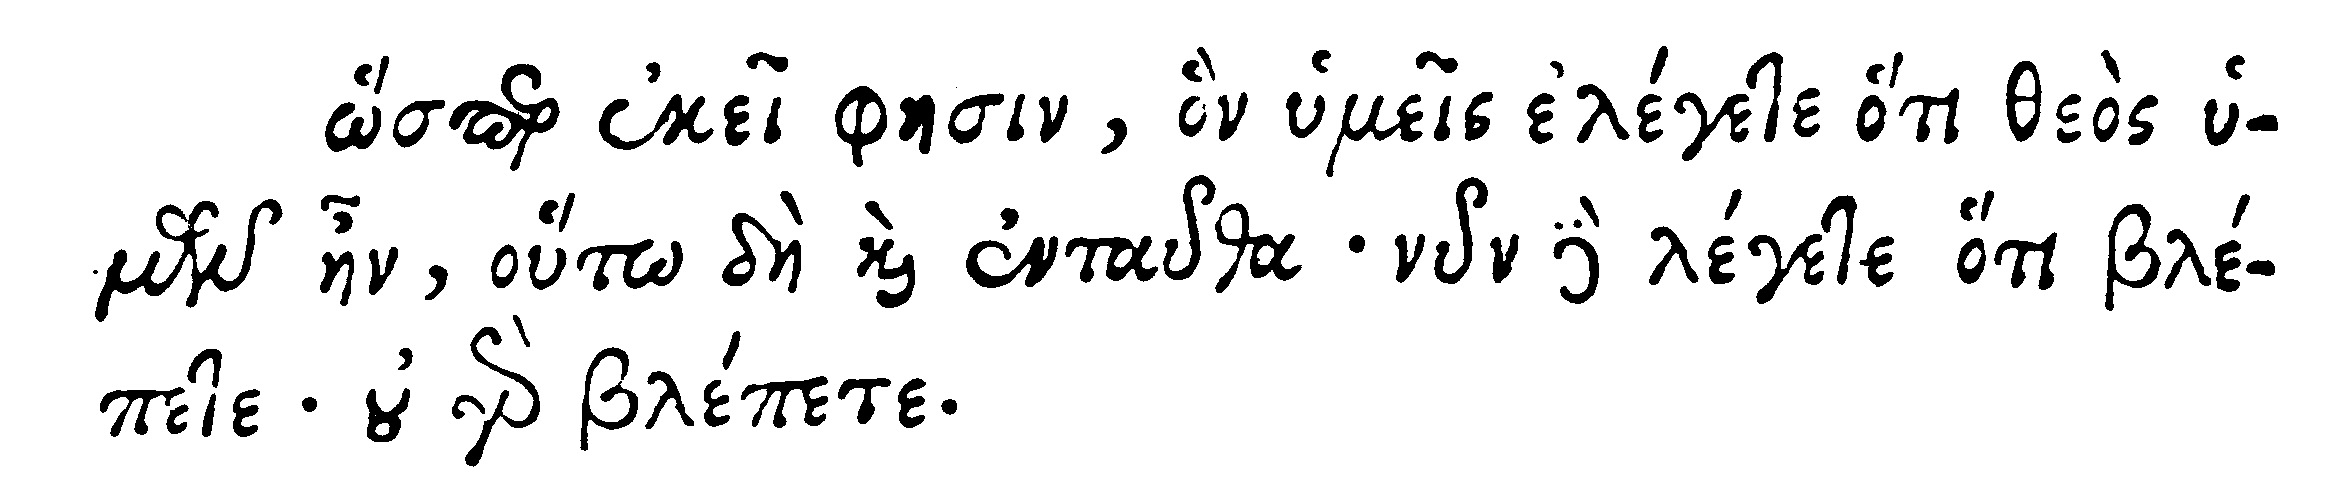 ὥσπερ ἐκεῖ φησιν, ὃν ὑμεῖς ἐλέγετε ὅτι θεὸς ὑ-
μῶν ἦν, οὕτω δὴ καὶ ἐνταῦθα · νῦν δὲ λέγετε ὅτι βλέ-
πετε · οὐ γὰρ βλέπετε.